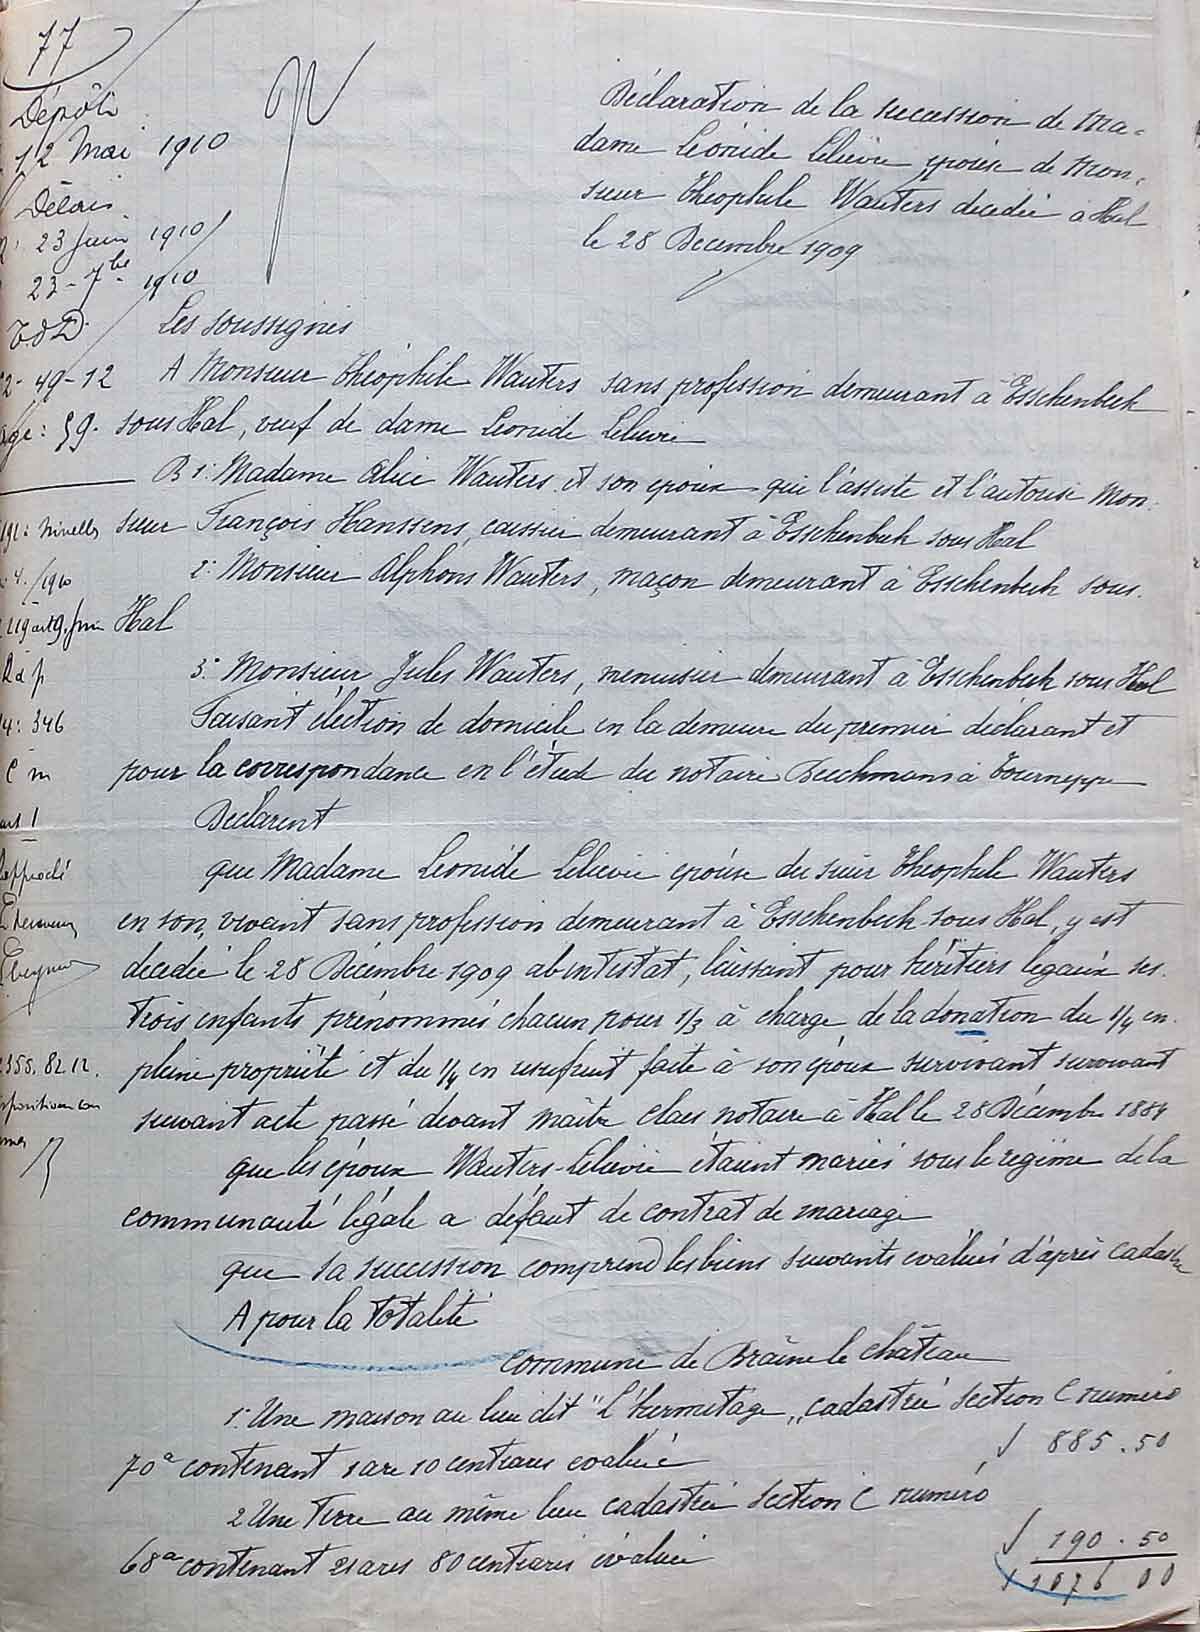 77
Dépôt:
12 Mai 1910
Délais
23 Juin 1910
23 - 7bre 1910
Déclaration de la succession de Ma=
dame Léonide Lelievre épouse de Mon=
sieur Théophile Wauters décédée à Hal
le 28 Décembre 1909
Les soussignés
A Monsieur Théophile Wauters sans profession demeurant à Esschenbeek
2 - 49 - 12
sous Hal, veuf de dame Léonide Lelievre
age: 59.
B 1: Madame Alice Wauters et son époux qui l'assiste et l'autorise Mon=
sieur François Hanssens, caissier demeurant à Esschenbeek sous Hal
Nivelles
2: Monsieur Alphons Wauters, maçon demeurant à Esschenbeek sous
4./1910
Hal
219 art 9.
3: Monsieur Jules Wauters, menuisier demeurant à Esschenbeek sous Hal
Faisant élection de domicile en la demeure du premier déclarant et
4: 346
pour la correspondance en l'étude du notaire Beeckmans à Tourneppe
Déclarent
que Madame Léonide Lelievre épouse du sieur Théophile Wauters
en son vivant sans profession demeurant à Esschenbeek sous Hal, y est
décédée le 28 Décembre 1909 ab intestat, laissant pour héritiers légaux ses
trois enfants prénommés chacun pour 1/3 à charge de la donation du 1/4 en
pleine propriété et du 1/4 en usufruit faite à son époux survivant survivant
355. 82. 12.
suivant acte passé devant maître Claes notaire à Hal le 28 Décembre 1884
que les époux Wauters-Lelievre étaient mariés sous le régime de la
communauté légale a défaut de contrat de mariage
que sa succession comprend les biens suivants évalués d'après cadastre
A pour la totalité
Commune de Braine le Château
1: Une maison au lieu dit "l'hermitage" cadastrée section C numéro
70a contenant 1 are 10 centiares évaluée
885.50
2 Une terre au même lieu cadastrée section C numéro
68a contenant 21 ares 80 centiares évaluée
190.50
1076 00